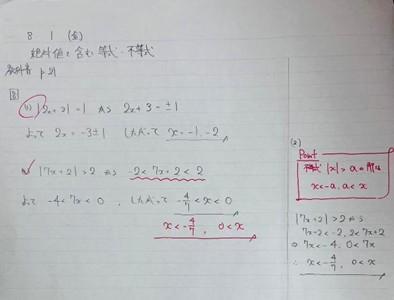 8 1 (金)
絶対値を含む等式・不等式
教科書 p.31
問
(1) |2x+3|=1 から 2x+3=±1
よって 2x=-3±1 したがって x=-1,-2
(2) |7x+2|>2 から -2<7x+2<2
よって -4<7x<0 , したがって -4/7<x<0
x<-4/7, 0<x
(2)
Point
不等式 |x|>a の解は
x<-a, a<x
|7x+2|>2 から
7x+2<-2, 2<7x+2
7x<-4, 0<7x
∴ x<-4/7, 0<x